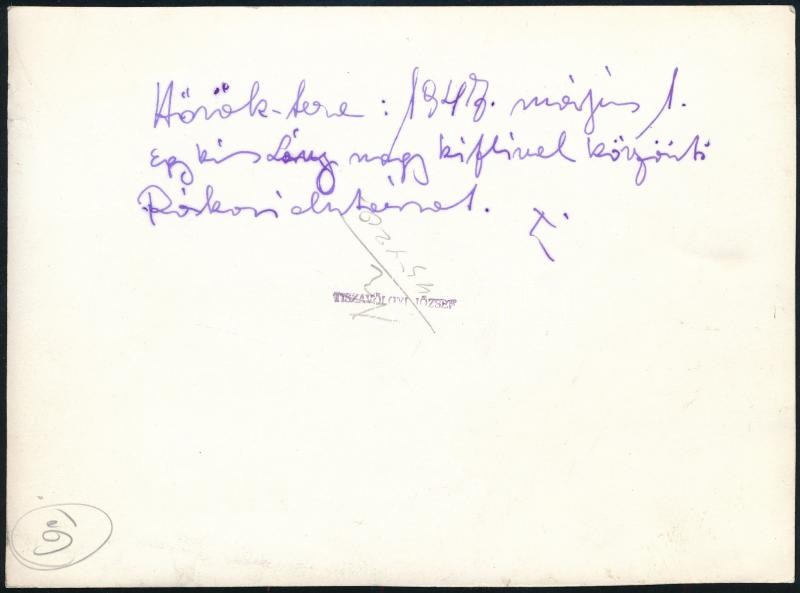 Hősök-tere: 1947. május 1.
egy kis Lány nagy kiflivel köszönti
Rákosi elvtársat. T.
TISZAVÖLGYI JÓZSEF